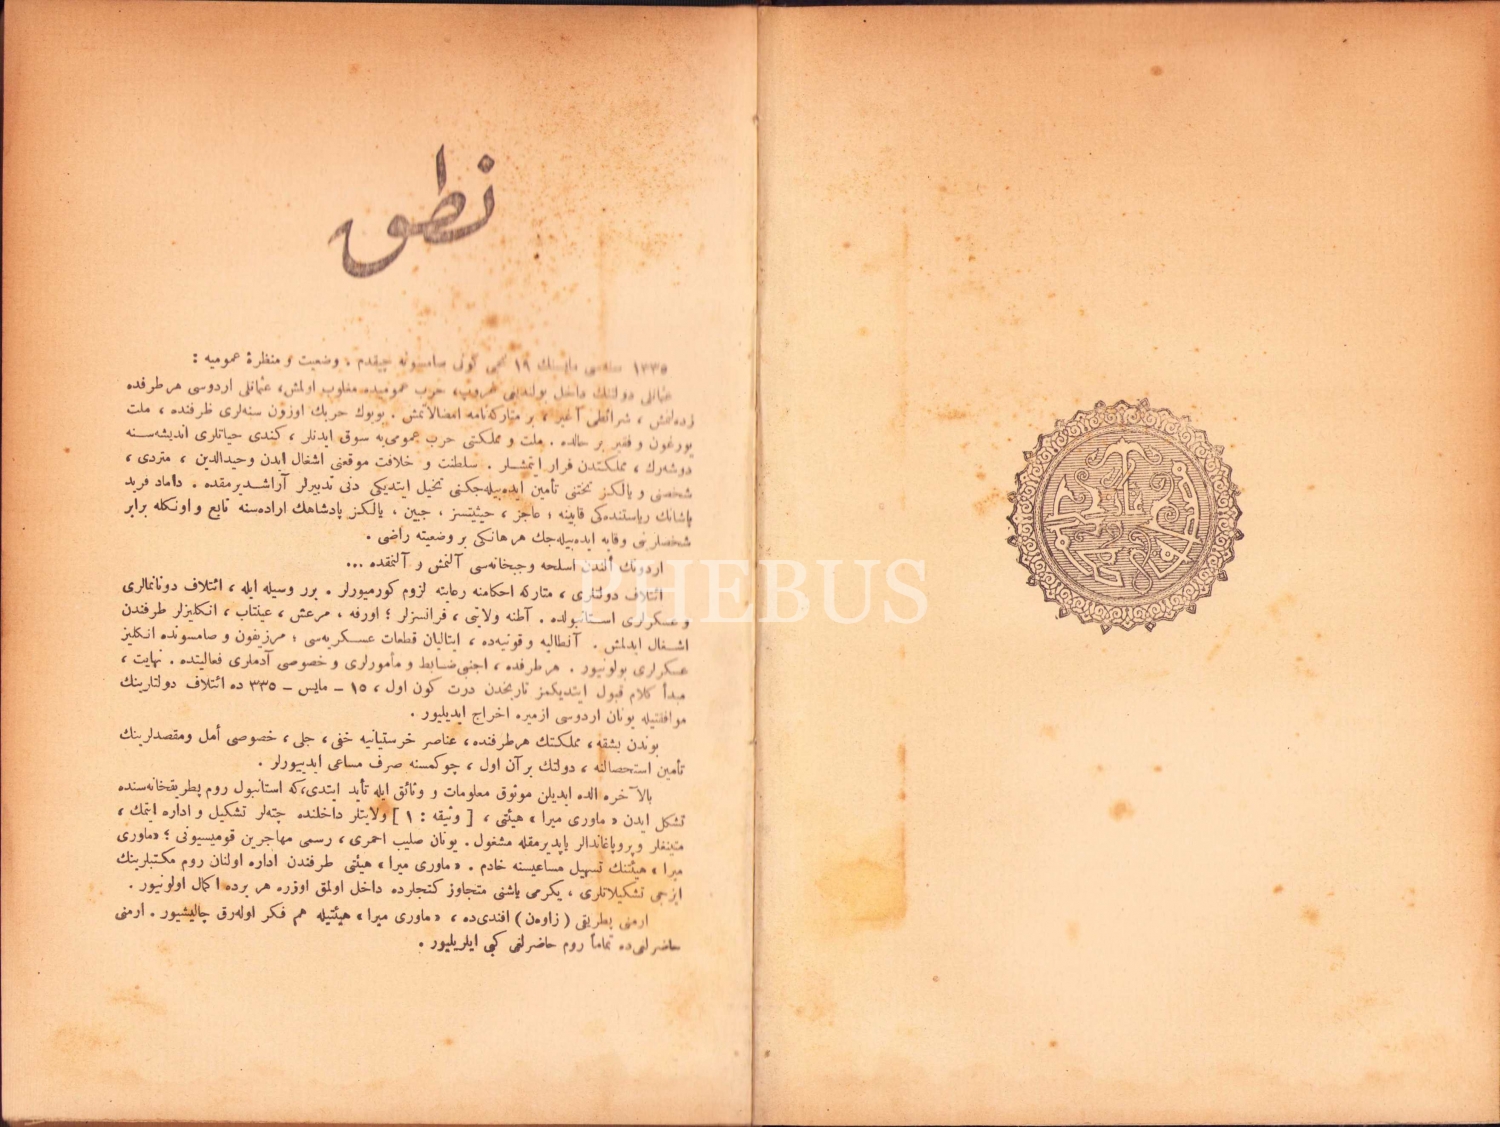 نطق
١٣٣٥ سنه‌سی مایسنك ١٩ نجی كونی سامسونه چیقدم . وضعیت و منظرهٔ عمومیه :
عثمانلی دولتنك داخل بولندیغی غروپ، حرب عمومیده مغلوب اولمش، عثمانلی اردوسی هر طرفده
زده‌لنمش ، شرائطی آغیر ، بر متاركه‌نامه امضالانمش . بویوك حربك اوزون سنه‌لری ظرفنده ، ملت
یورغون و فقیر بر حالده . ملت و مملكتی حرب عمومی‌یه سوق ایدنلر ، كندی حیاتلری اندیشه‌سنه
دوشه‌رك ، مملكتدن فرار ایتمشلر . سلطنت و خلافت موقعنی اشغال ایدن وحیدالدین ، متردی ،
شخصنی و یالكز تختنی تأمین ایده‌بیله‌جكنی تخیل ایتدیكی دنی تدبیرلر آراشدیرمقده . داماد فرید
پاشانك ریاستنده‌كی قابینه ؛ عاجز ، حیثیتسز ، جبین ، یالكز پادشاهك اراده‌سنه تابع و اونكله برابر
شخصلرینی وقایه ایده‌بیله‌جك هر هانكی بر وضعیته راضی .
اردونك ألندن اسلحه و جبخانه‌سی آلنمش و آلنمقده ...
ائتلاف دولتلری ، متاركه احكامنه رعایته لزوم كورمیورلر . برر وسیله ایله ، ائتلاف دونانمالری
و عسكرلری استانبولده . آطنه ولایتی ، فرانسزلر ؛ اورفه ، مرعش ، عینتاب ، انكلیزلر طرفندن
اشغال ایدلمش . آنطالیه و قونیه‌ده ، ایتالیان قطعات عسكریه‌سی ؛ مرزیفون و صامسونده انكلیز
عسكرلری بولونیور . هر طرفده ، اجنبی ضابط و مأمورلری و خصوصی آدملری فعالیتده . نهایت ،
مبدأ كلام قبول ایتدیكمز تاریخدن درت كون اول ، ١٥ – مایس – ٣٣٥ ده ائتلاف دولتلرینك
موافقتیله یونان اردوسی ازمیره اخراج ایدیلیور .
بوندن بشقه ، مملكتك هر طرفنده ، عناصر خرستیانیه خفی ، جلی ، خصوصی أمل ومقصدلرینك
تأمین استحصالنه ، دولتك بر آن اول ، چوكمسنه صرف مساعی ایدییورلر .
بالآخره الده ایدیلن موثوق معلومات و وثائق ایله تأید ایتدی،كه استانبول روم پطریقخانه‌سنده
تشكل ایدن « ماوری میرا » هیئتی ، [ وثیقه : ١ ] ولایتلر داخلنده چته‌لر تشكیل و اداره ایتمك ،
میتینغلر و پروپاغاندالر یاپدیرمقله مشغول . یونان صلیب احمری ، رسمی مهاجرین قومیسیونی ؛ «ماوری
میرا » هیئتنك تسهیل مساعیسنه خادم . « ماوری میرا » هیئتی طرفندن اداره اولنان روم مكتبلرینك
ایزجی تشكیلاتلری ، یكرمی یاشنی متجاوز كنجلرده داخل اولمق اوزره هر یرده اكمال اولونیور .
ارمنی پطریقی ( زاوه‌ن ) افندی‌ده ، « ماوری میرا » هیئتیله هم فكر اوله‌رق چالیشیور . ارمنی
حاضرلغی‌ده تماماً روم حاضرلغی كبی ایلریلیور .
PHEBUS